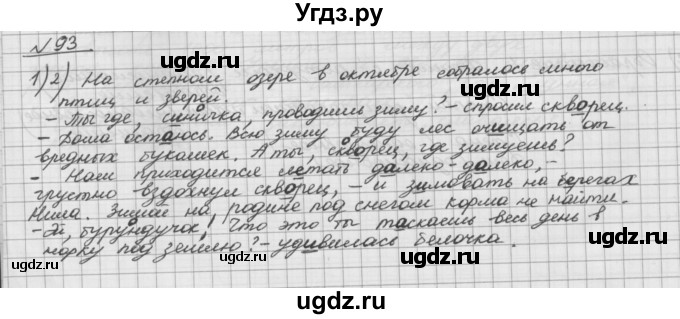 Угдз.ру
№ 93
1) 2) На степном озере в октябре собралось много
птиц и зверей.
- Ты где, синичка, проводишь зиму? - спросил скворец.
- Дома остаюсь. Всю зиму буду лес очищать от
вредных букашек. А ты, скворец, где зимуешь?
- Нам приходится летать далеко-далеко, -
грустно вздохнул скворец, - и зимовать на берегах
Нила. Зимой на родине под снегом корма не найти.
- Эй, бурундучок! Что это ты таскаешь весь день в
норку под землю? - удивилась белочка.
ugdz.ru
ugdz.ru
ugdz.ru
ugdz.ru
ugdz.ru
ugdz.ru
ugdz.ru
ugdz.ru